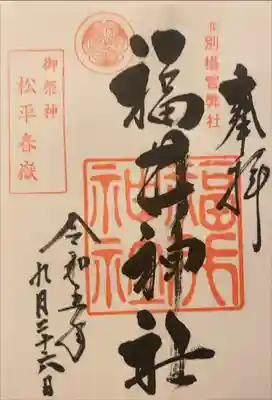 奉拝
旧別格官幣社
福井神社
福井
神社
御祭神
松平春嶽
令和五年
九月二十六日